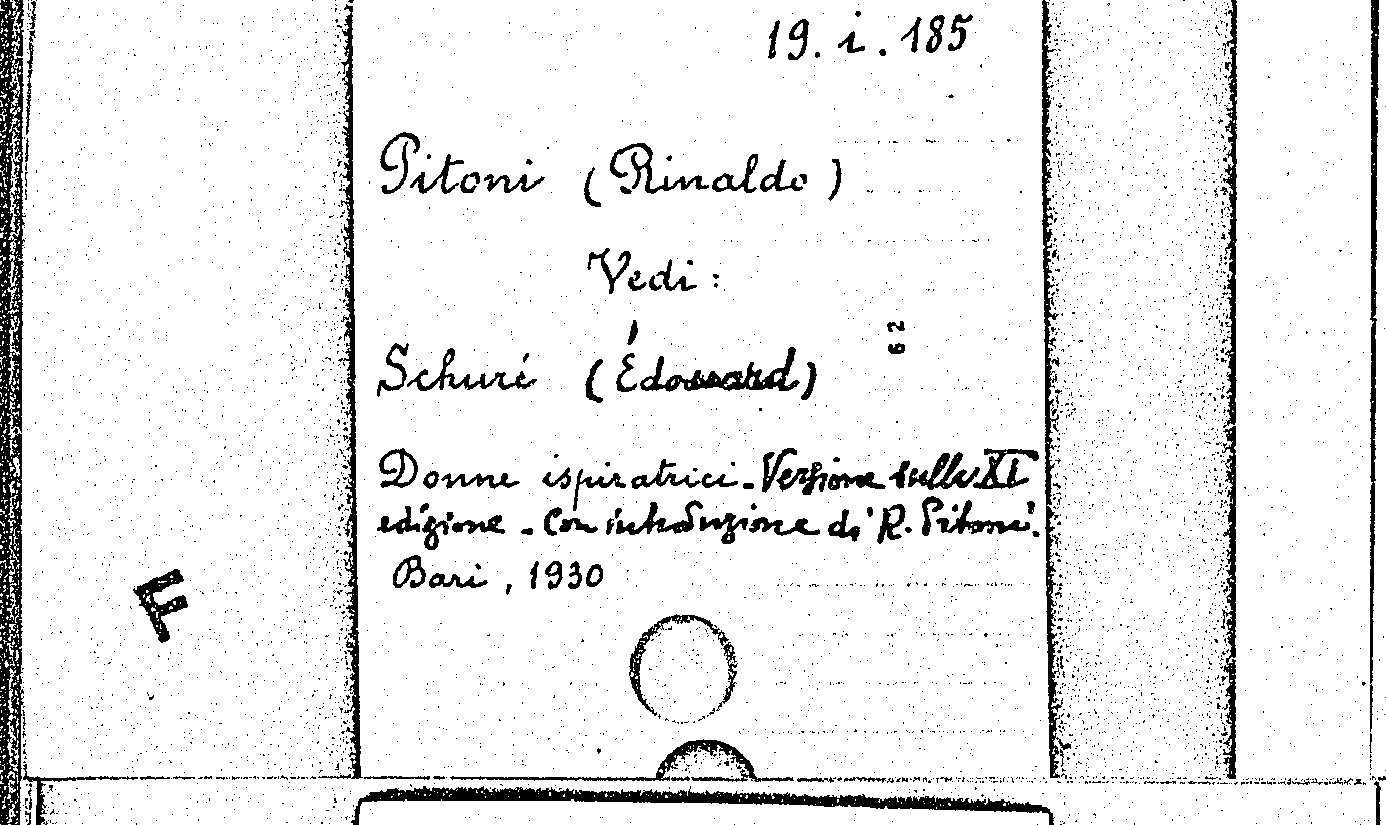 19. i. 185
Pitoni (Rinaldo)
Vedi :
62
Schuré (Édossard)
Donne ispiratrici. Versione sulla XI
edizione. Con introduzione di R. Pitoni.
Bari, 1930
F